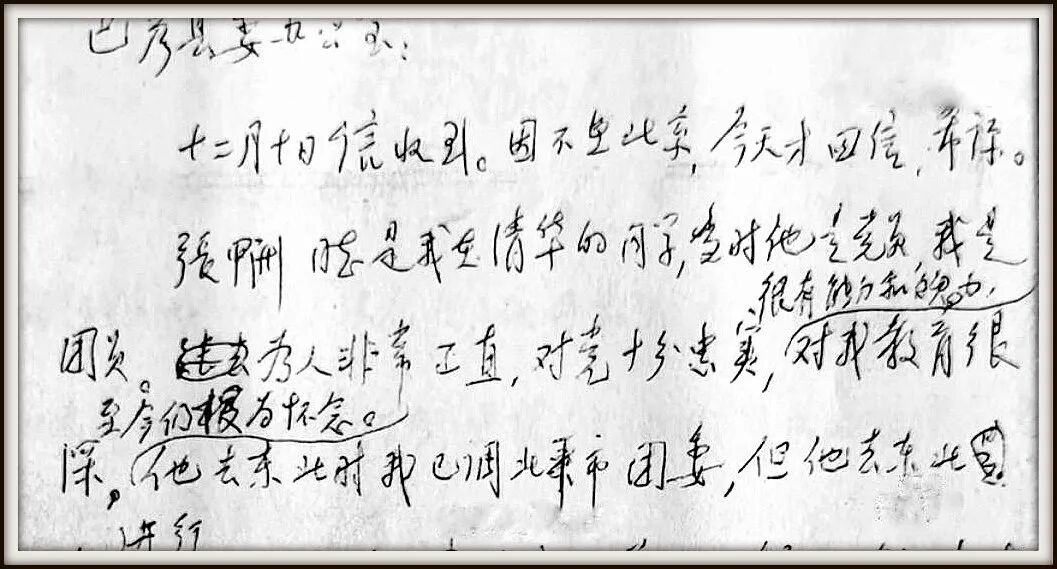 巴彦县委办公室：
十二月十日信收到。因不在北京，今天才回信，希谅。
張甲洲同志是我在清华的同学，当时他是党员，我是
很有能力和魄力，
团员。为人非常正直，对党十分忠实，对我教育很
至今仍极为怀念。
深，他去东北时我已调北京市团委，但他去东北
进行